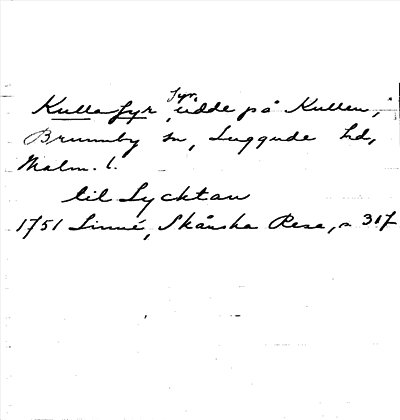 Kulla fyr, fyr, udde på Kullen,
Brunnby sn, Luggude hd,
Malm. l.
till Lycktan
1751 Linné, Skånska Resa, s 317